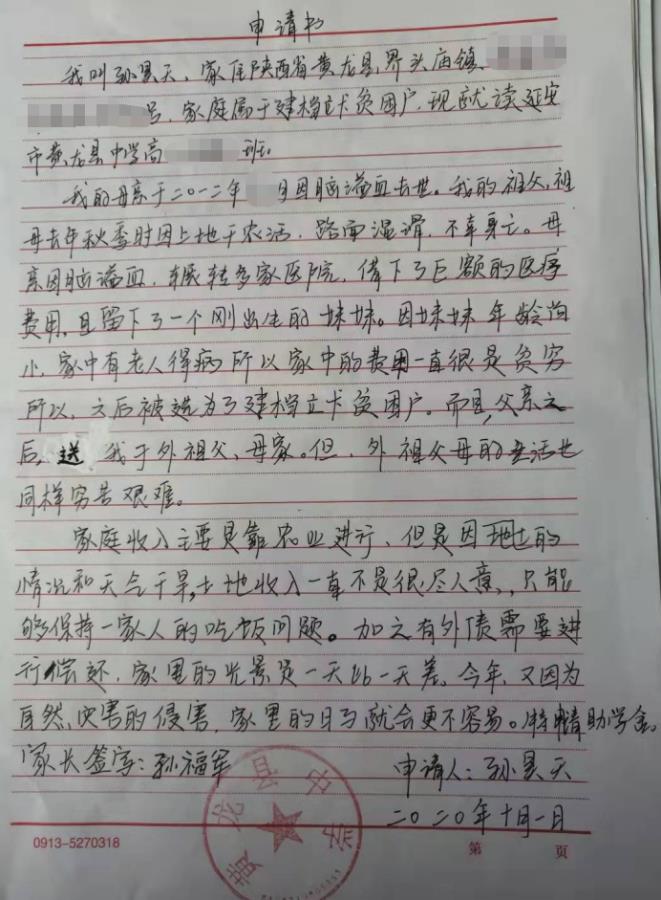 申请书
我叫孙昊天，家住陕西省黄龙县，界头庙镇，
号，家庭属于建档立卡贫困户，现就读延安
市黄龙县中学高 班。
我的母亲于二〇一二年 月因脑溢血去世。我的祖父，祖
母去年秋季时因上地干农活，路面湿滑，不幸身亡。母
亲因脑溢血，辗转多家医院，借下了巨额的医疗
费用，且留下了一个刚出生的妹妹。因妹妹年龄尚
小，家中有老人得病所以家中的费用一直很是贫穷
所以，之后被选为了建档立卡贫困户。而且，父亲之
后，送 我于外祖父、母家。但，外祖父母的生活也
同样穷苦艰难。
家庭收入主要是靠农业进行，但是因 的
情况和天气干旱，土地收入一直不是很尽人意，只能
够保持一家人的吃饭问题。加之有外债需要进
行偿还，家里的光景是一天比一天差，今年，又因为
自然灾害的侵害，家里的日子就会更不容易。特申请助学金。
家长签字：孙福军
申请人：孙昊天
二〇二〇年十月一日
黄龙县中学
0913-5270318 第 页